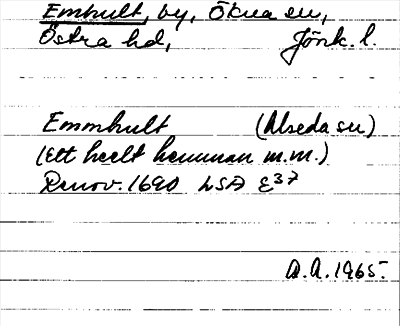 Emhult, by, Ökna sn,
Östra hd, Jönk. l.
Emmhult (Alseda sn)
(Ett heelt hemman m.m.)
Renov. 1690 LSA E37
A.A. 1965.